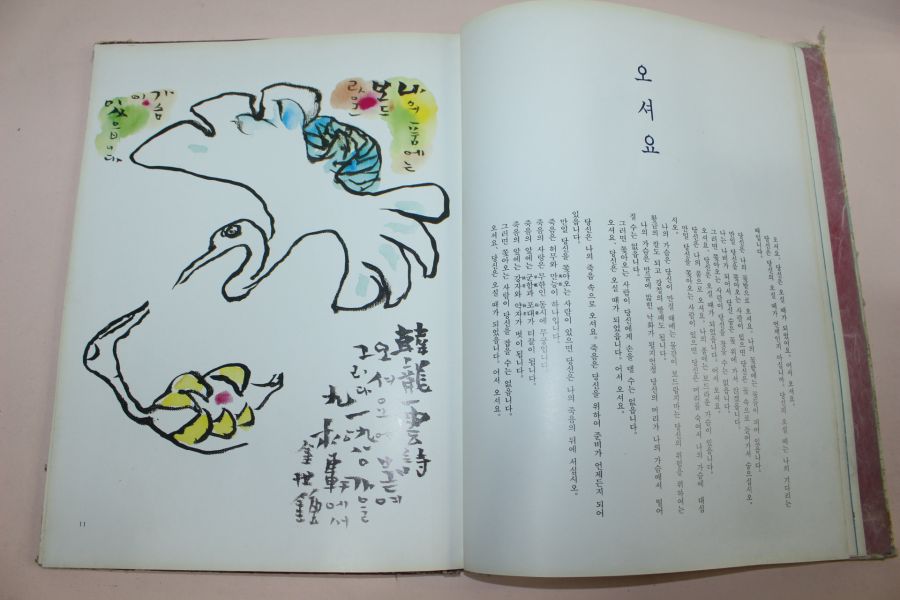 나의 품에는
보드
라운
가슴
이
있읍니다
韓龍雲詩
오셔요에
그리다
에서
11
오셔요
오셔요, 당신은 오실 때가 되었어요, 어서 오셔요.
당신은 당신의 오실 때가 언제인지 아십니까, 당신의 오실 때는 나의 기다리는
때입니다.
당신은 나의 꽃밭으로 오셔요, 나의 꽃밭에는 꽃들이 피어 있습니다.
만일 당신을 쫓아오는 사람이 있으면 당신은 꽃 속으로 들어가서 숨으십시오.
나는 나비가 되어서 당신 숨은 꽃 위에 가서 앉겠습니다.
그러면 쫓아오는 사람이 당신을 찾을 수는 없습니다.
오셔요, 당신은 오실 때가 되었습니다, 어서 오셔요.
당신은 나의 품으로 오셔요, 나의 품에는 보드라운 가슴이 있습니다.
만일 당신을 쫓아오는 사람이 있으면 당신은 머리를 숙여서 나의 가슴에 대십
시오.
나의 가슴은 당신이 만질 때에는 물같이 보드랍지만는 당신의 위험을 위하여는
황금의 칼도 되고 강철의 방패도 됩니다.
나의 가슴은 말굽에 밟힌 낙화가 될지언정 당신의 머리가 나의 가슴에서 떨어
질 수는 없습니다.
그러면 쫓아오는 사람이 당신에게 손을 댈 수는 없습니다.
오셔요, 당신은 오실 때가 되었습니다. 어서 오셔요.
당신은 나의 죽음 속으로 오셔요. 죽음은 당신을 위하여 준비가 언제든지 되어
있읍니다.
만일 당신을 쫓아오는 사람이 있으면 당신은 나의 죽음의 뒤에 서십시오.
죽음은 허무와 만능이 하나입니다.
죽음의 사랑은 무한인 동시에 무궁입니다.
죽음의 앞에는 군함과 포대가 티끌이 됩니다.
죽음의 앞에는 강자와 약자가 벗이 됩니다.
그러면 쫓아오는 사람이 당신을 잡을 수는 없습니다.
오셔요, 당신은 오실 때가 되었습니다. 어서 오셔요.